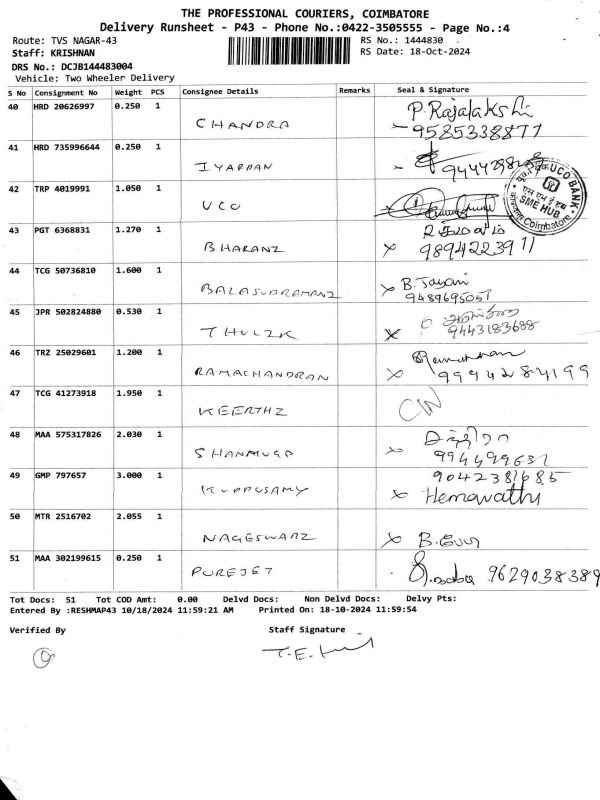 THE PROFESSIONAL COURIERS, COIMBATORE
Delivery Runsheet - P43 - Phone No.:0422-3505555 - Page No.:4
Route: TVS NAGAR-43 RS No.: 1444830
Staff: KRISHNAN RS Date: 18-Oct-2024
DRS No.: DCJB144483004
Vehicle: Two Wheeler Delivery
S No Consignment No Weight PCS Consignee Details Remarks Seal & Signature
40 HRD 20626997 0.250 1 CHANDRA P. Rajalakshi
9585338877
41 HRD 735996644 0.250 1 IYAPPAN
42 TRP 4019991 1.050 1 UCO
UCO BANK
SME HUB
Coimbatore
43 PGT 6368831 1.270 1 BHARANI
9894223911
44 TCG 50736810 1.600 1 BALASUBRAMANI B. Jayani
9489695051
45 JPR 502824880 0.530 1
9443183688
46 TRZ 25029601 1.200 1 RAMACHANDRAN
9994284199
47 TCG 41273918 1.950 1 KEERTHI
48 MAA 575317826 2.030 1 SHANMUGA
49 GMP 797657 3.000 1 KUPPUSAMY
Hemavathi
50 MTR 2516702 2.055 1 NAGESWARI
51 MAA 302199615 0.250 1 PUREJET 9629038389
Tot Docs: 51 Tot COD Amt: 0.00 Delvd Docs: Non Delvd Docs: Delvy Pts:
Entered By :RESHMAP43 10/18/2024 11:59:21 AM Printed On: 18-10-2024 11:59:54
Verified By Staff Signature